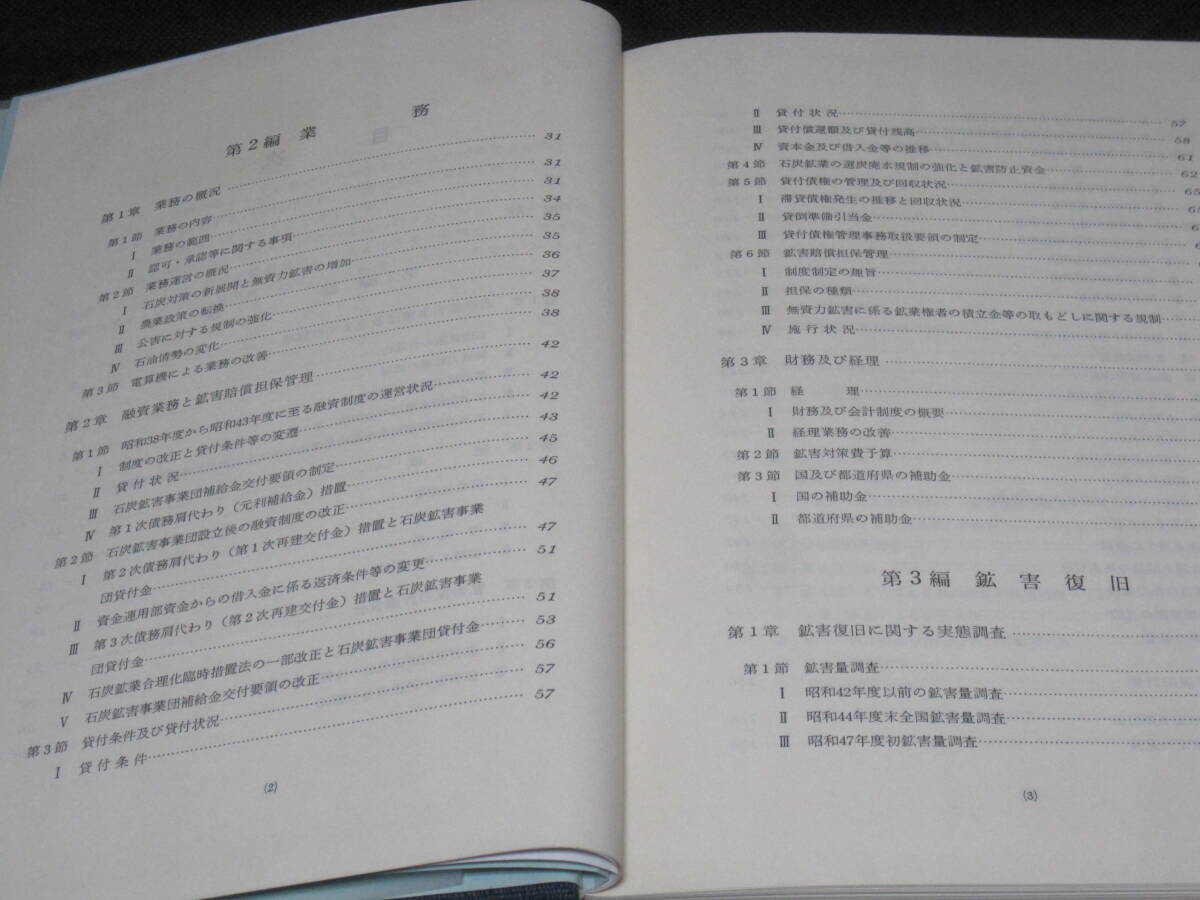 第2編 業 務
第1章 業務の概況 31
第1節 業務の内容 31
Ⅰ 業務の範囲 31
Ⅱ 認可・承認等に関する事項 34
第2節 業務運営の概況 35
Ⅰ 石炭対策の新展開と無資力鉱害の増加 35
Ⅱ 農業政策の転換 36
Ⅲ 公害に対する規制の強化 37
Ⅳ 石油情勢の変化 38
第3節 電算機による業務の改善 38
第2章 融資業務と鉱害賠償担保管理 42
第1節 昭和38年度から昭和43年度に至る融資制度の運営状況 42
Ⅰ 制度の改正と貸付条件等の変遷 42
Ⅱ 貸付状況 43
Ⅲ 石炭鉱害事業団補給金交付要領の制定 45
Ⅳ 第1次債務肩代わり(元利補給金)措置 46
第2節 石炭鉱害事業団設立後の融資制度の改正 47
Ⅰ 第2次債務肩代わり(第1次再建交付金)措置と石炭鉱害事業
団貸付金 47
Ⅱ 資金運用部資金からの借入金に係る返済条件等の変更 51
Ⅲ 第3次債務肩代わり(第2次再建交付金)措置と石炭鉱害事業
団貸付金 51
Ⅳ 石炭鉱業合理化臨時措置法の一部改正と石炭鉱害事業団貸付金 53
Ⅴ 石炭鉱害事業団補給金交付要領の改正 56
第3節 貸付条件及び貸付状況 57
Ⅰ 貸付条件 57
(2)
Ⅱ 貸付状況 57
Ⅲ 貸付償還額及び貸付残高 58
Ⅳ 資本金及び借入金等の推移 61
第4節 石炭鉱業の選炭廃水規制の強化と鉱害防止資金 62
第5節 貸付債権の管理及び回収状況
Ⅰ 滞貸債権発生の推移と回収状況
Ⅱ 貸倒準備引当金
Ⅲ 貸付債権管理事務取扱要領の制定
第6節 鉱害賠償担保管理
Ⅰ 制度制定の趣旨
Ⅱ 担保の種類
Ⅲ 無資力鉱害に係る鉱業権者の積立金等の取もどしに関する規制
Ⅳ 施行状況
第3章 財務及び経理
第1節 経 理
Ⅰ 財務及び会計制度の概要
Ⅱ 経理業務の改善
第2節 鉱害対策費予算
第3節 国及び都道府県の補助金
Ⅰ 国の補助金
Ⅱ 都道府県の補助金
第3編 鉱害復旧
第1章 鉱害復旧に関する実態調査
第1節 鉱害量調査
Ⅰ 昭和42年度以前の鉱害量調査
Ⅱ 昭和44年度末全国鉱害量調査
Ⅲ 昭和47年度初鉱害量調査
(3)